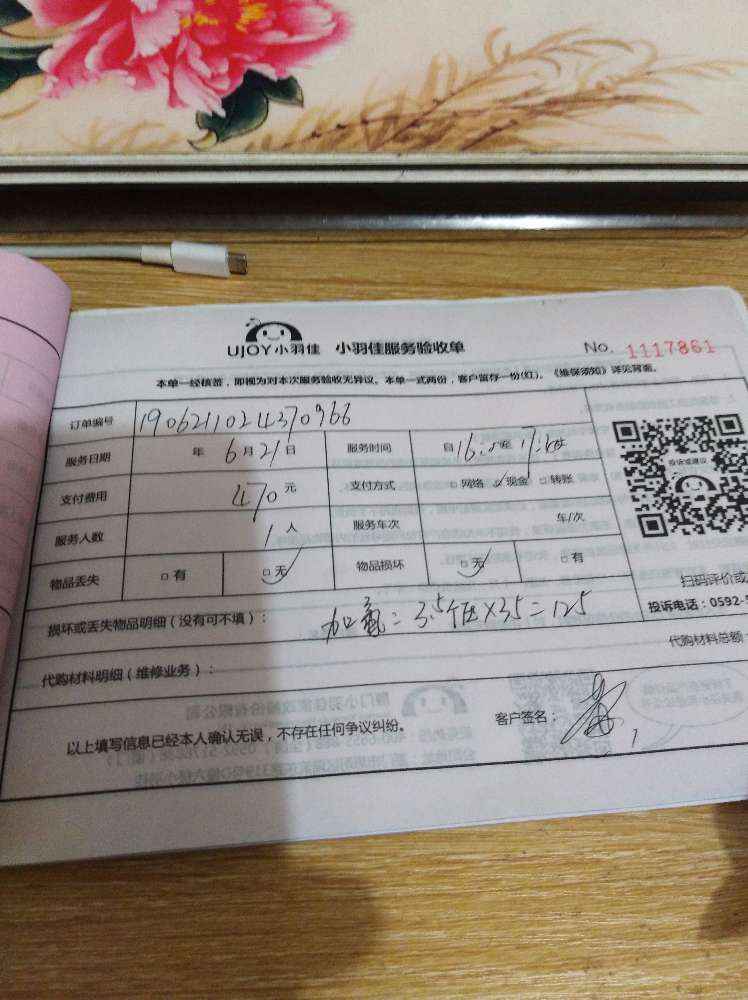 UJOY小羽佳 小羽佳服务验收单 No. 1117861
本单一经核签，即视为对本次服务验收无异议。本单一式两份，客户留存一份(红)。《维保须知》详见背面。
订单编号 1906211024370966
服务日期 年 6月21日 服务时间 自16: 至17:
支付费用 470元 支付方式 □网络 ☑现金 □转账
投诉或建议
服务人数 1人 服务车次 车/次
物品丢失 □有 ☑无 物品损坏 ☑无 □有
扫码评价或
损坏或丢失物品明细（没有可不填）： 加氟：3.5 ×35=125
投诉电话：0592-5
代购材料明细（维修业务）： 代购材料总额
以上填写信息已经本人确认无误，不存在任何争议纠纷。 客户签名：